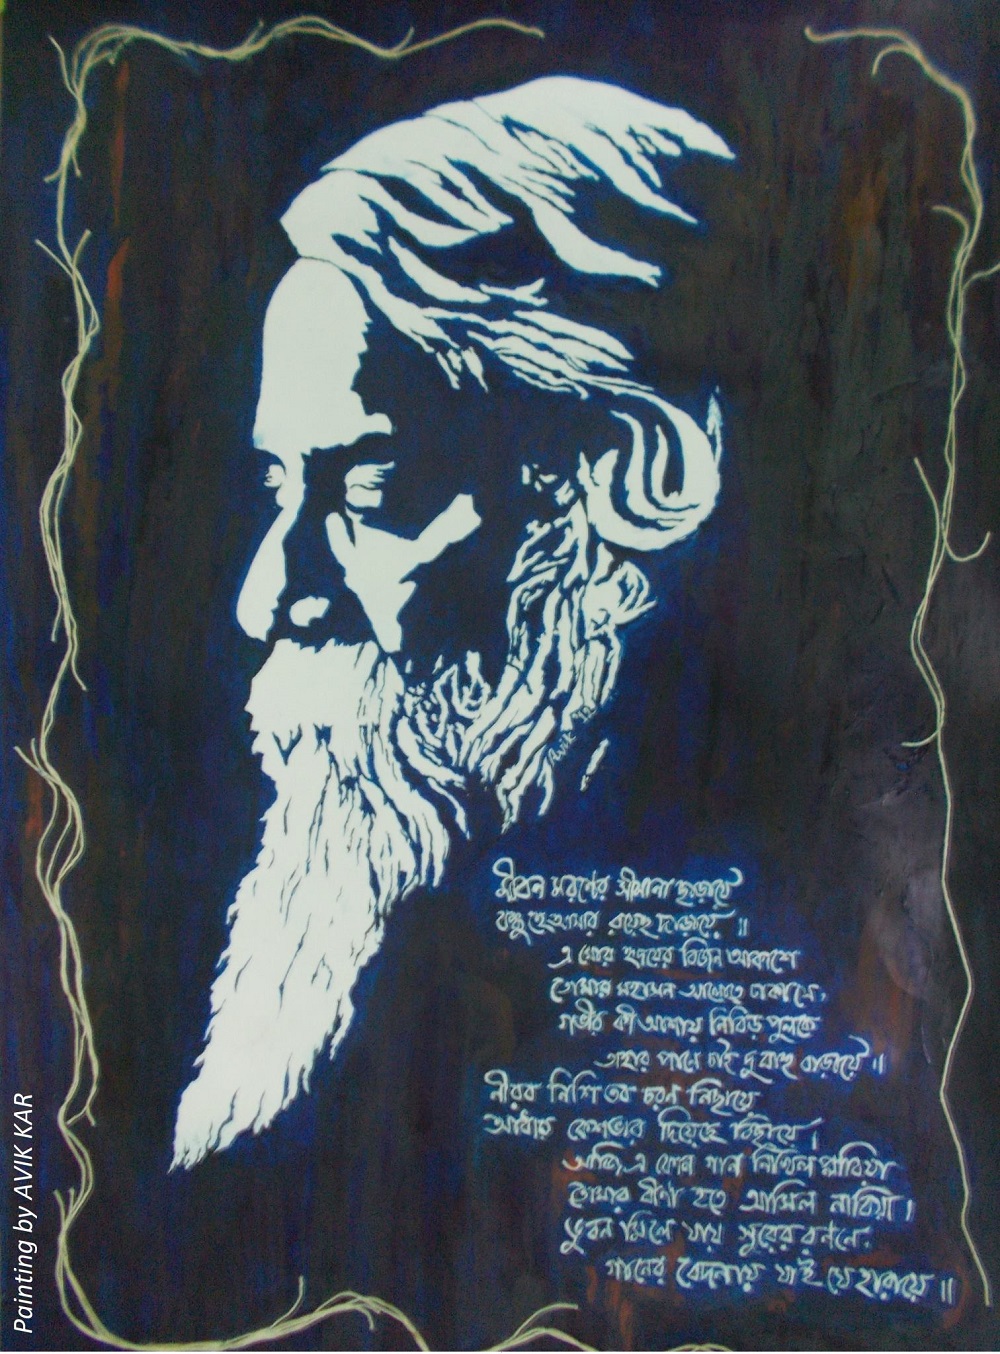 জীবন মরণের সীমানা ছাড়ায়ে
বন্ধু হে আমার রয়েছ দাঁড়ায়ে ॥
এ মোর হৃদয়ের বিজন আকাশে
তোমার মহাসন আলোতে ঢাকা সে,
গভীর কী আশায় নিবিড় পুলকে
তাহার পানে চাই দু বাহু বাড়ায়ে ॥
নীরব নিশি তব চরণ নিছায়ে
আঁধার কেশভার দিয়েছে বিছায়ে।
আজি এ কোন গান নিখিল প্লাবিয়া
তোমার বীণা হতে আসিল নাবিয়া।
ভুবন মিলে যায় সুরের রণনে,
গানের বেদনায় যাই যে হারায়ে ॥
Avik
Painting by AVIK KAR